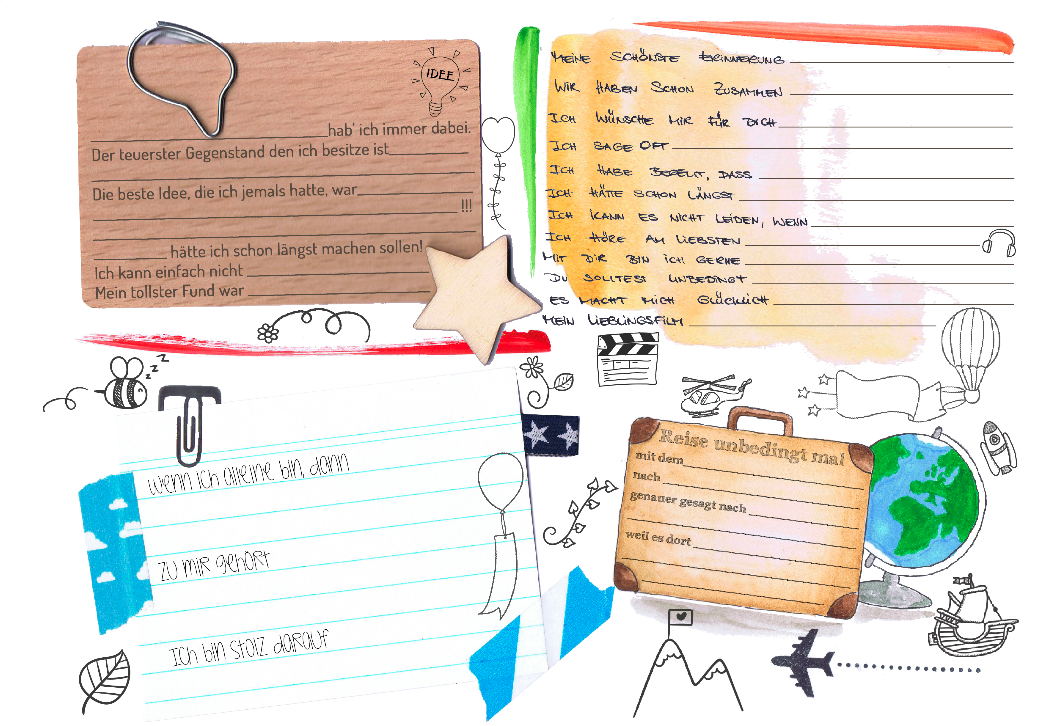 IDEE
hab' ich immer dabei.
Der teuerster Gegenstand den ich besitze ist
Die beste Idee, die ich jemals hatte, war
!!!
hätte ich schon längst machen sollen!
Ich kann einfach nicht
Mein tollster Fund war
MEINE SCHÖNSTE ERINNERUNG
WIR HABEN SCHON ZUSAMMEN
ICH WÜNSCHE MIR FÜR DICH
ICH SAGE OFT
ICH HABE DASS
ICH HÄTTE SCHON LÄNGST
ICH KANN ES NICHT LEIDEN, WENN
ICH HÖRE AM LIEBSTEN
MIT DIR BIN ICH GERNE
DU SOLLTEST UNBEDINGT
ES MACHT MICH GLÜCKLICH
MEIN LIEBLINGSFILM
z z z
wenn ich alleine bin, dann
zu mir gehört
Ich bin stolz darauf
Reise unbedingt mal
mit dem
nach
genauer gesagt nach
weil es dort